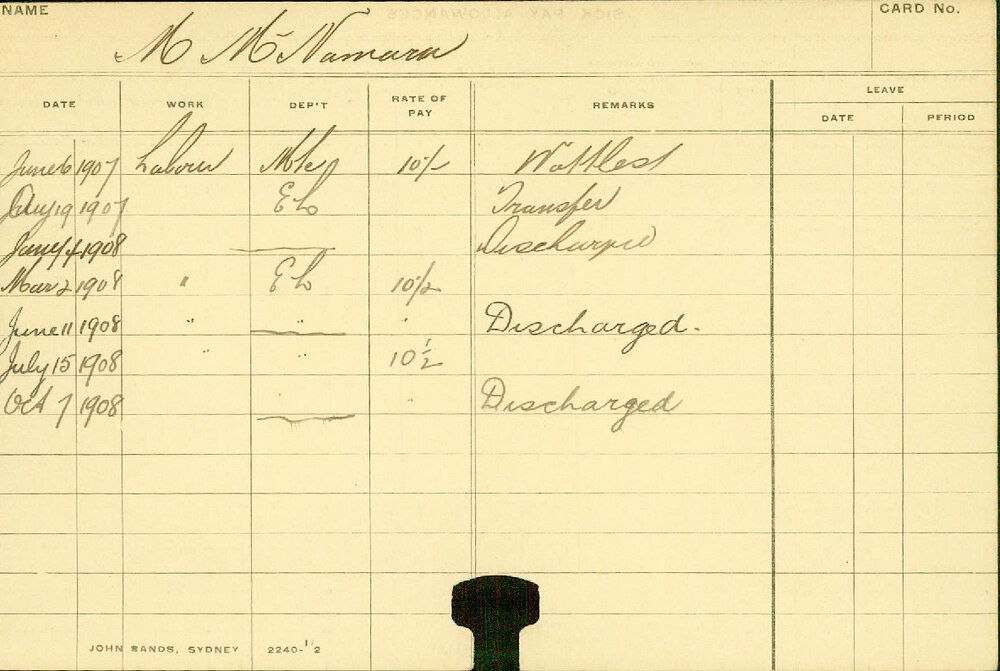 NAME CARD No.
M McNamara
DATE WORK DEP'T RATE OF PAY REMARKS LEAVE
DATE PERIOD
June 6 1907 Labour 10/-
Aug 19 1907 Transfer
Jany 4 1908 Discharged
Mar 2 1908 " 10½
June 11 1908 " " " Discharged.
July 15 1908 " " 10½
Oct 7 1908 " Discharged
JOHN SANDS, SYDNEY 2240-½